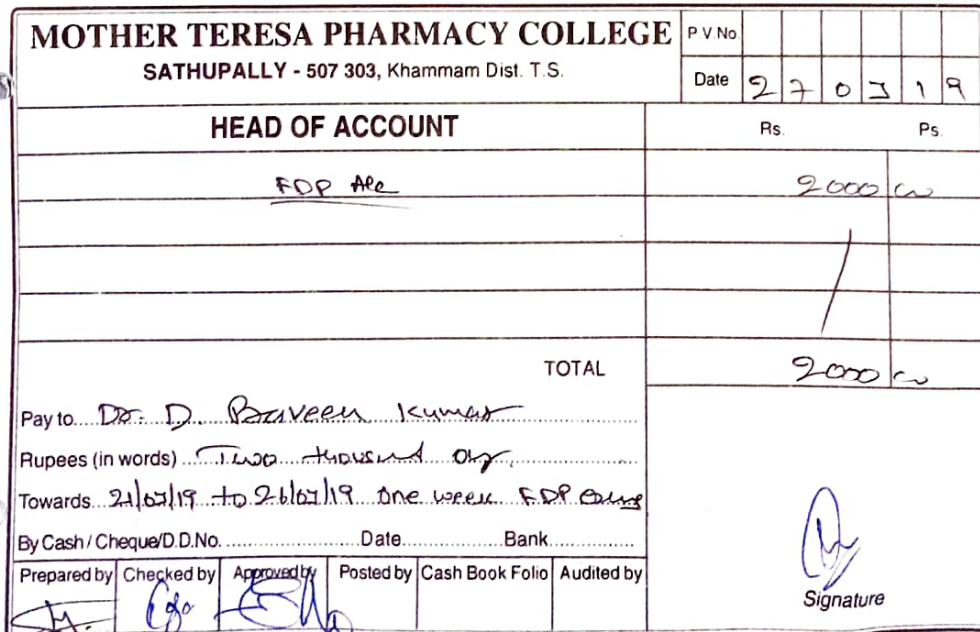 MOTHER TERESA PHARMACY COLLEGE
SATHUPALLY - 507 303, Khammam Dist. T.S.
P V No.
Date 2 7 0 7 1 9
HEAD OF ACCOUNT Rs. Ps.
FDP A/c 2000 00
TOTAL 2000 00
Pay to Dr. D. Praveen Kumar
Rupees (in words) Two thousand only
Towards 21/07/19 to 26/07/19 One week FDP
By Cash / Cheque/D.D.No. Date Bank
Prepared by Checked by Approved by Posted by Cash Book Folio Audited by
Signature